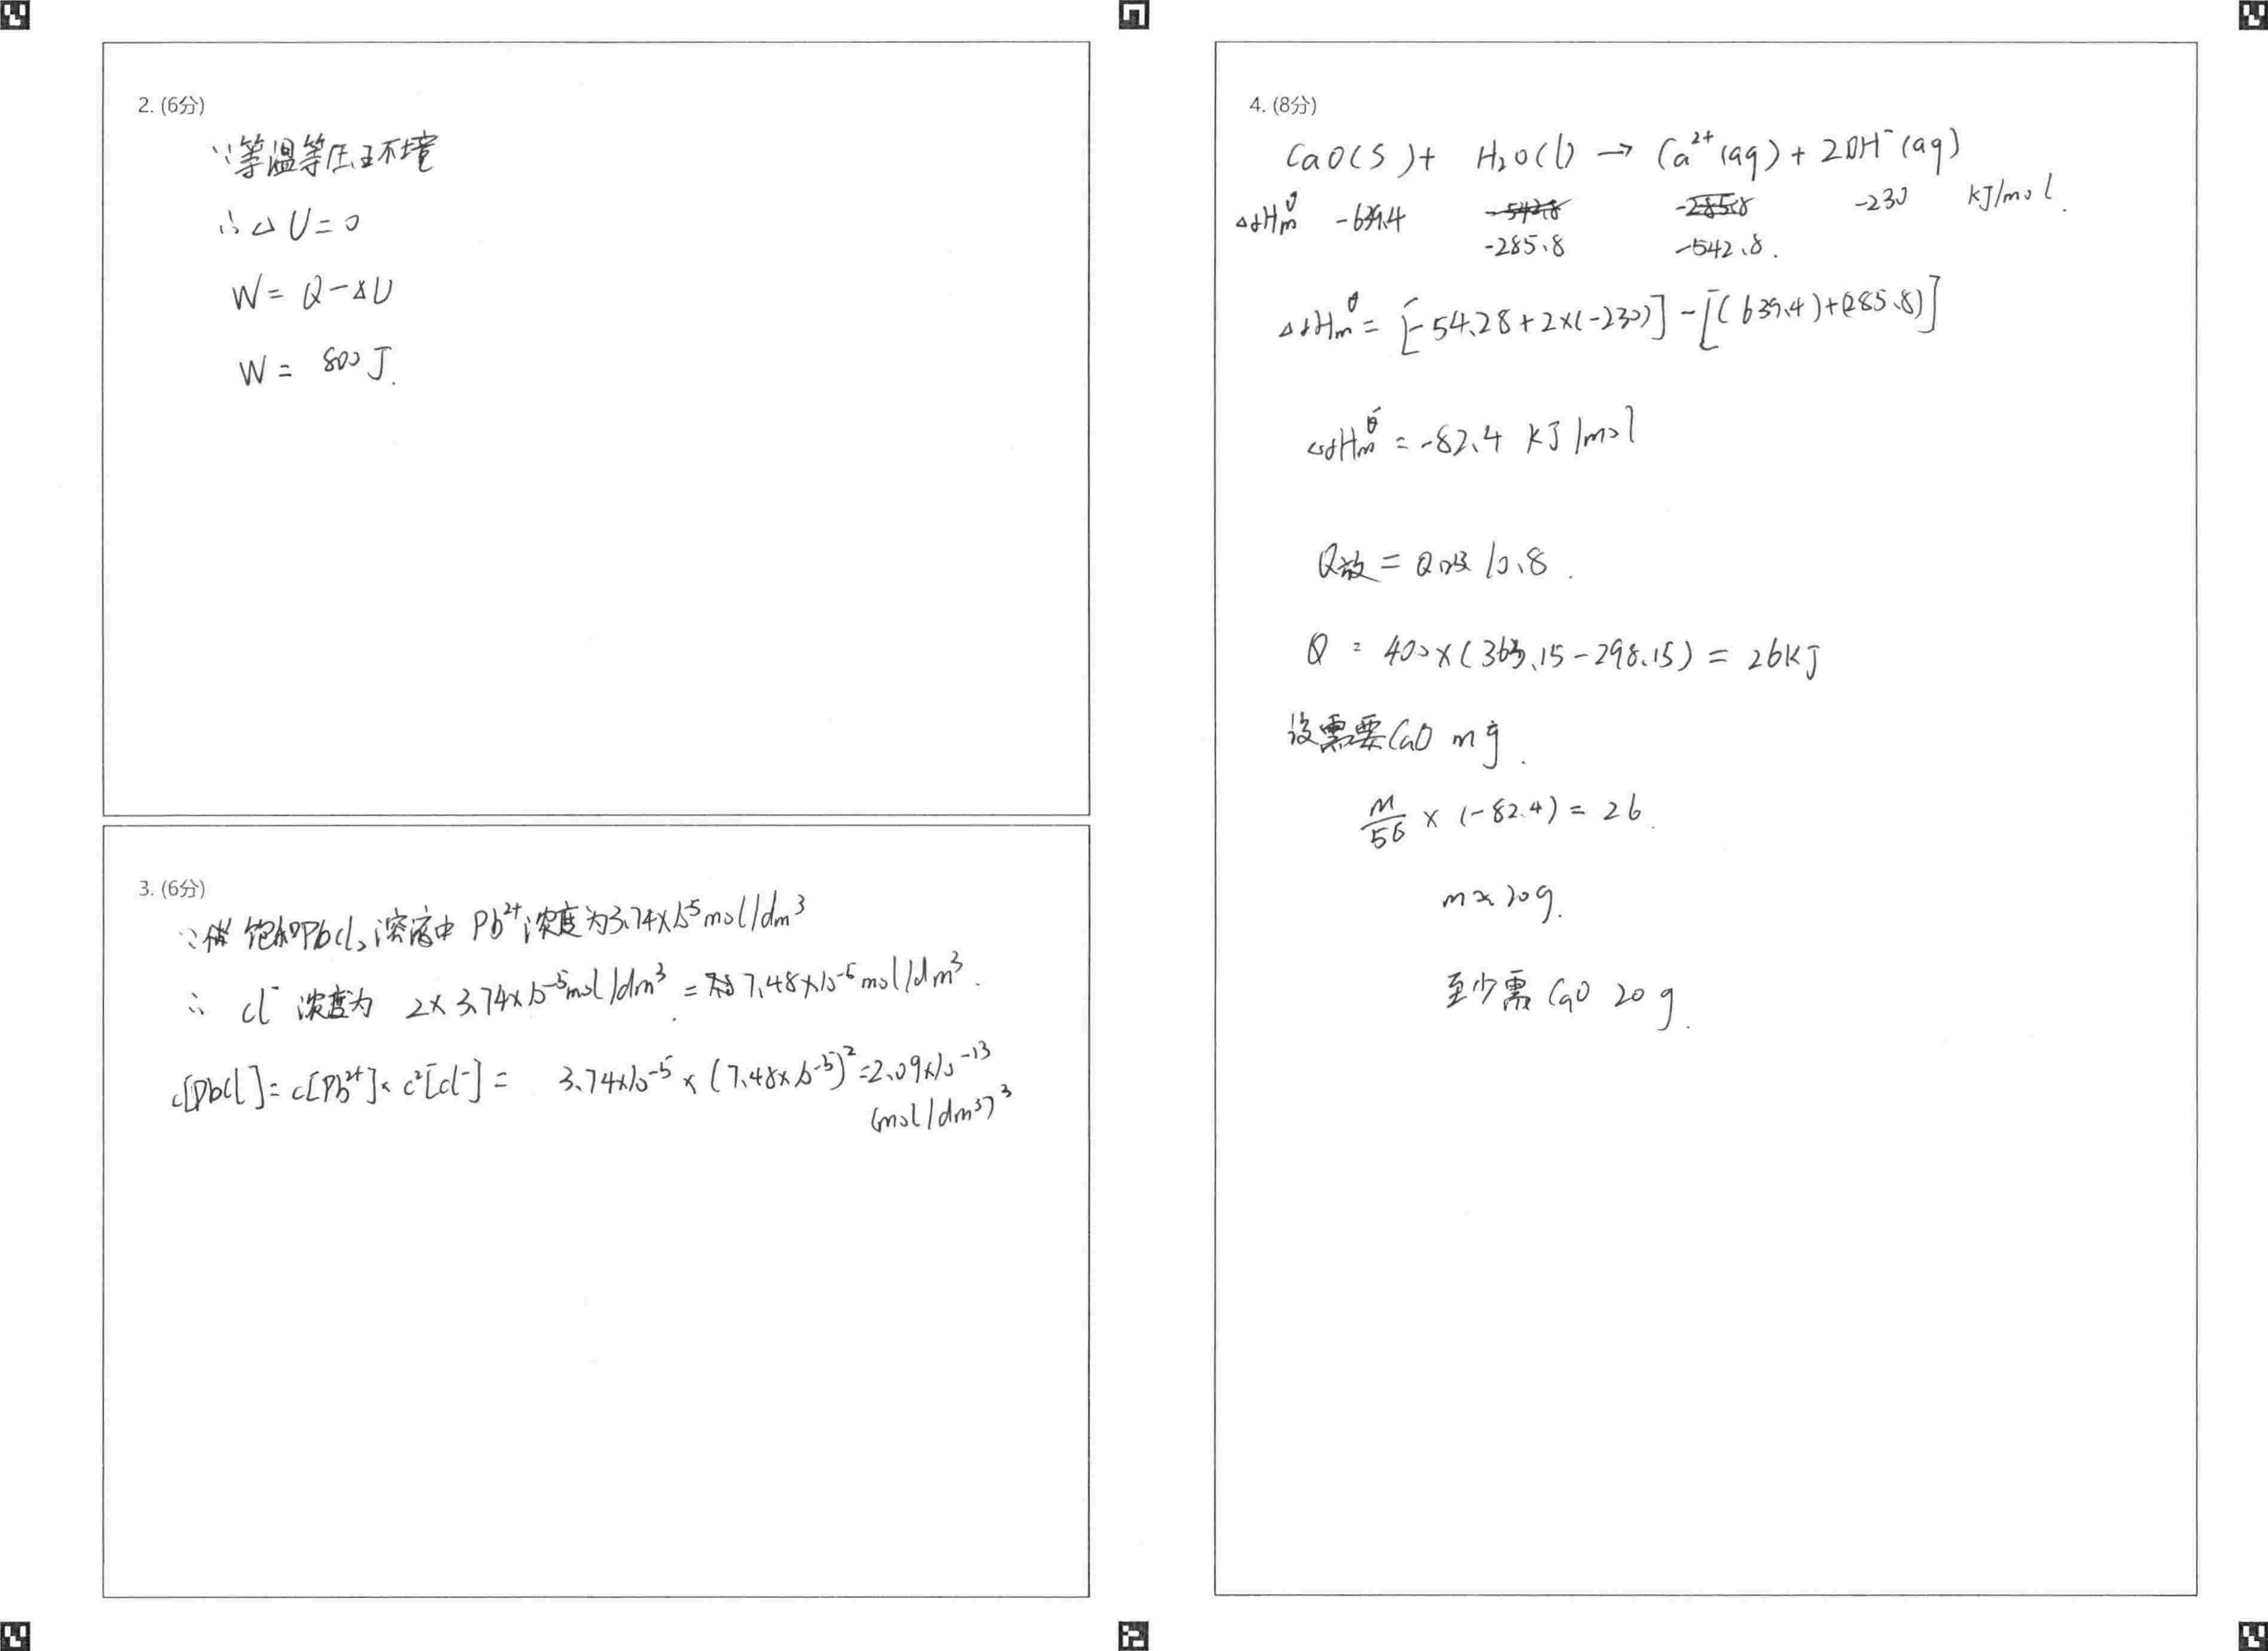 2. (6分)
∵等温等压环境
∴ΔU=0
W= Q-ΔU
W= 800J.
3. (6分)
∵ 饱和PbCl₂溶液中 Pb²⁺浓度为3.74×10⁻⁵mol/dm³
∴ Cl⁻ 浓度为 2×3.74×10⁻⁵mol/dm³ = 7.48×10⁻⁵mol/dm³.
c[PbCl]=c[Pb²⁺]×c²[Cl⁻]= 3.74×10⁻⁵×(7.48×10⁻⁵)²=2.09×10⁻¹³
(mol/dm³)³
4. (8分)
CaO(s)+ H₂O(l) → Ca²⁺(aq)+2OH⁻(aq)
ΔfHmθ -639.4 -542.8 -285.8 -230 kJ/mol.
-285.8 -542.8.
ΔrHmθ= [-54.28+2×(-230)]-[(639.4)+(285.8)]
ΔrHmθ = -82.4 kJ/mol
Q放=Q吸 /0.8.
Q = 400×(363.15-298.15) = 26kJ
设需要CaO m g.
m/56 × (-82.4) = 26.
m≈20g.
至少需CaO 20g.